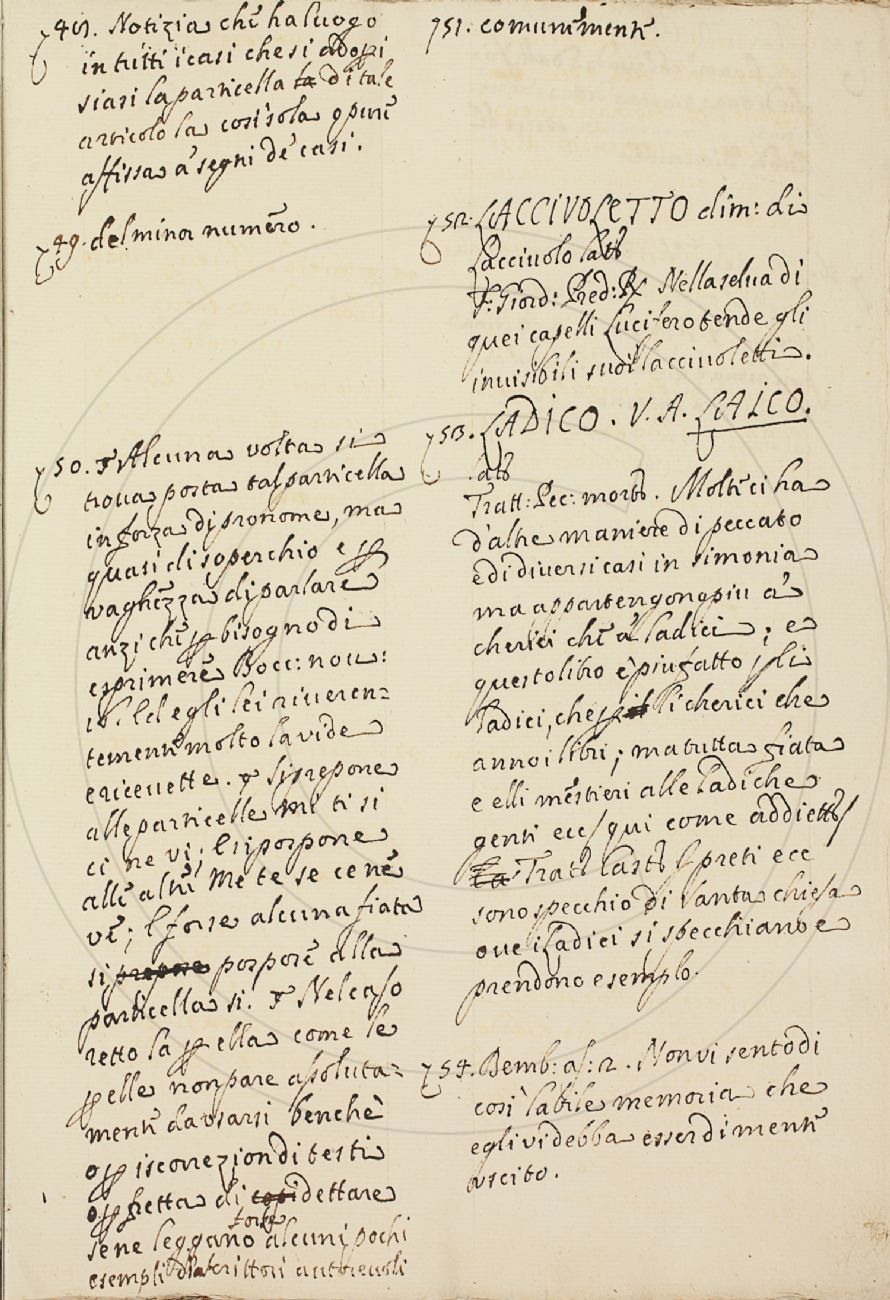 748. Notizia che ha luogo
in tutti i casi che si adopri
siasi la particella la di tale
articolo la così sola oppure
affissa a' segni de' casi.
749. del minor numero.
750. Alcuna volta si
trova posta tal particella
in forza di pronome, ma
quasi di soperchio e p
vaghezza di parlare
anzi che p bisogno di
esprimere Bocc: nov:
Ed egli lei riveren=
temente molto la vide
e ricevette. Si prepone
alle particelle mi ti si
ci ne vi; E si pospone
alle altre me te se ce ne
ve; E forse alcuna fiata
si prepose posporre alla
particella si. Nel caso
retto la p ella come le
p elle non pare assoluta=
mente da usarsi benchè
o p iscorrezion di testi
o p fretta di dettare
forse
se ne leggano alcuni pochi
esempli di scrittori autorevoli
751. comunemente.
752. LACCIVOLETTO dim: di
Lacciuolo lat
F. Giord: Pred: R Nella selva di
quei capelli Lucifero tende gli
invisibili suoi lacciuoletti.
753. LADICO. V. A. LAICO.
lat
Tratt: Pec: mort. Molti ci ha
d'altre maniere di peccato
e di diversi casi in simonia
ma appartengon piu a'
cherici che a' ladici; e
questo libro è piu fatto p li
ladici, che p li cherici che
anno i libri; ma tutta fiata
e elli mestieri alle ladiche
genti ecc/ qui come addiett/
La Tratt Cast I preti ecc
sono specchio di Santa chiesa
ove i Ladici si specchiano e
prendono esemplo.
754. Bemb: as: 2. Non vi sento di
così labile memoria che
egli vi debba esser di mente
uscito.